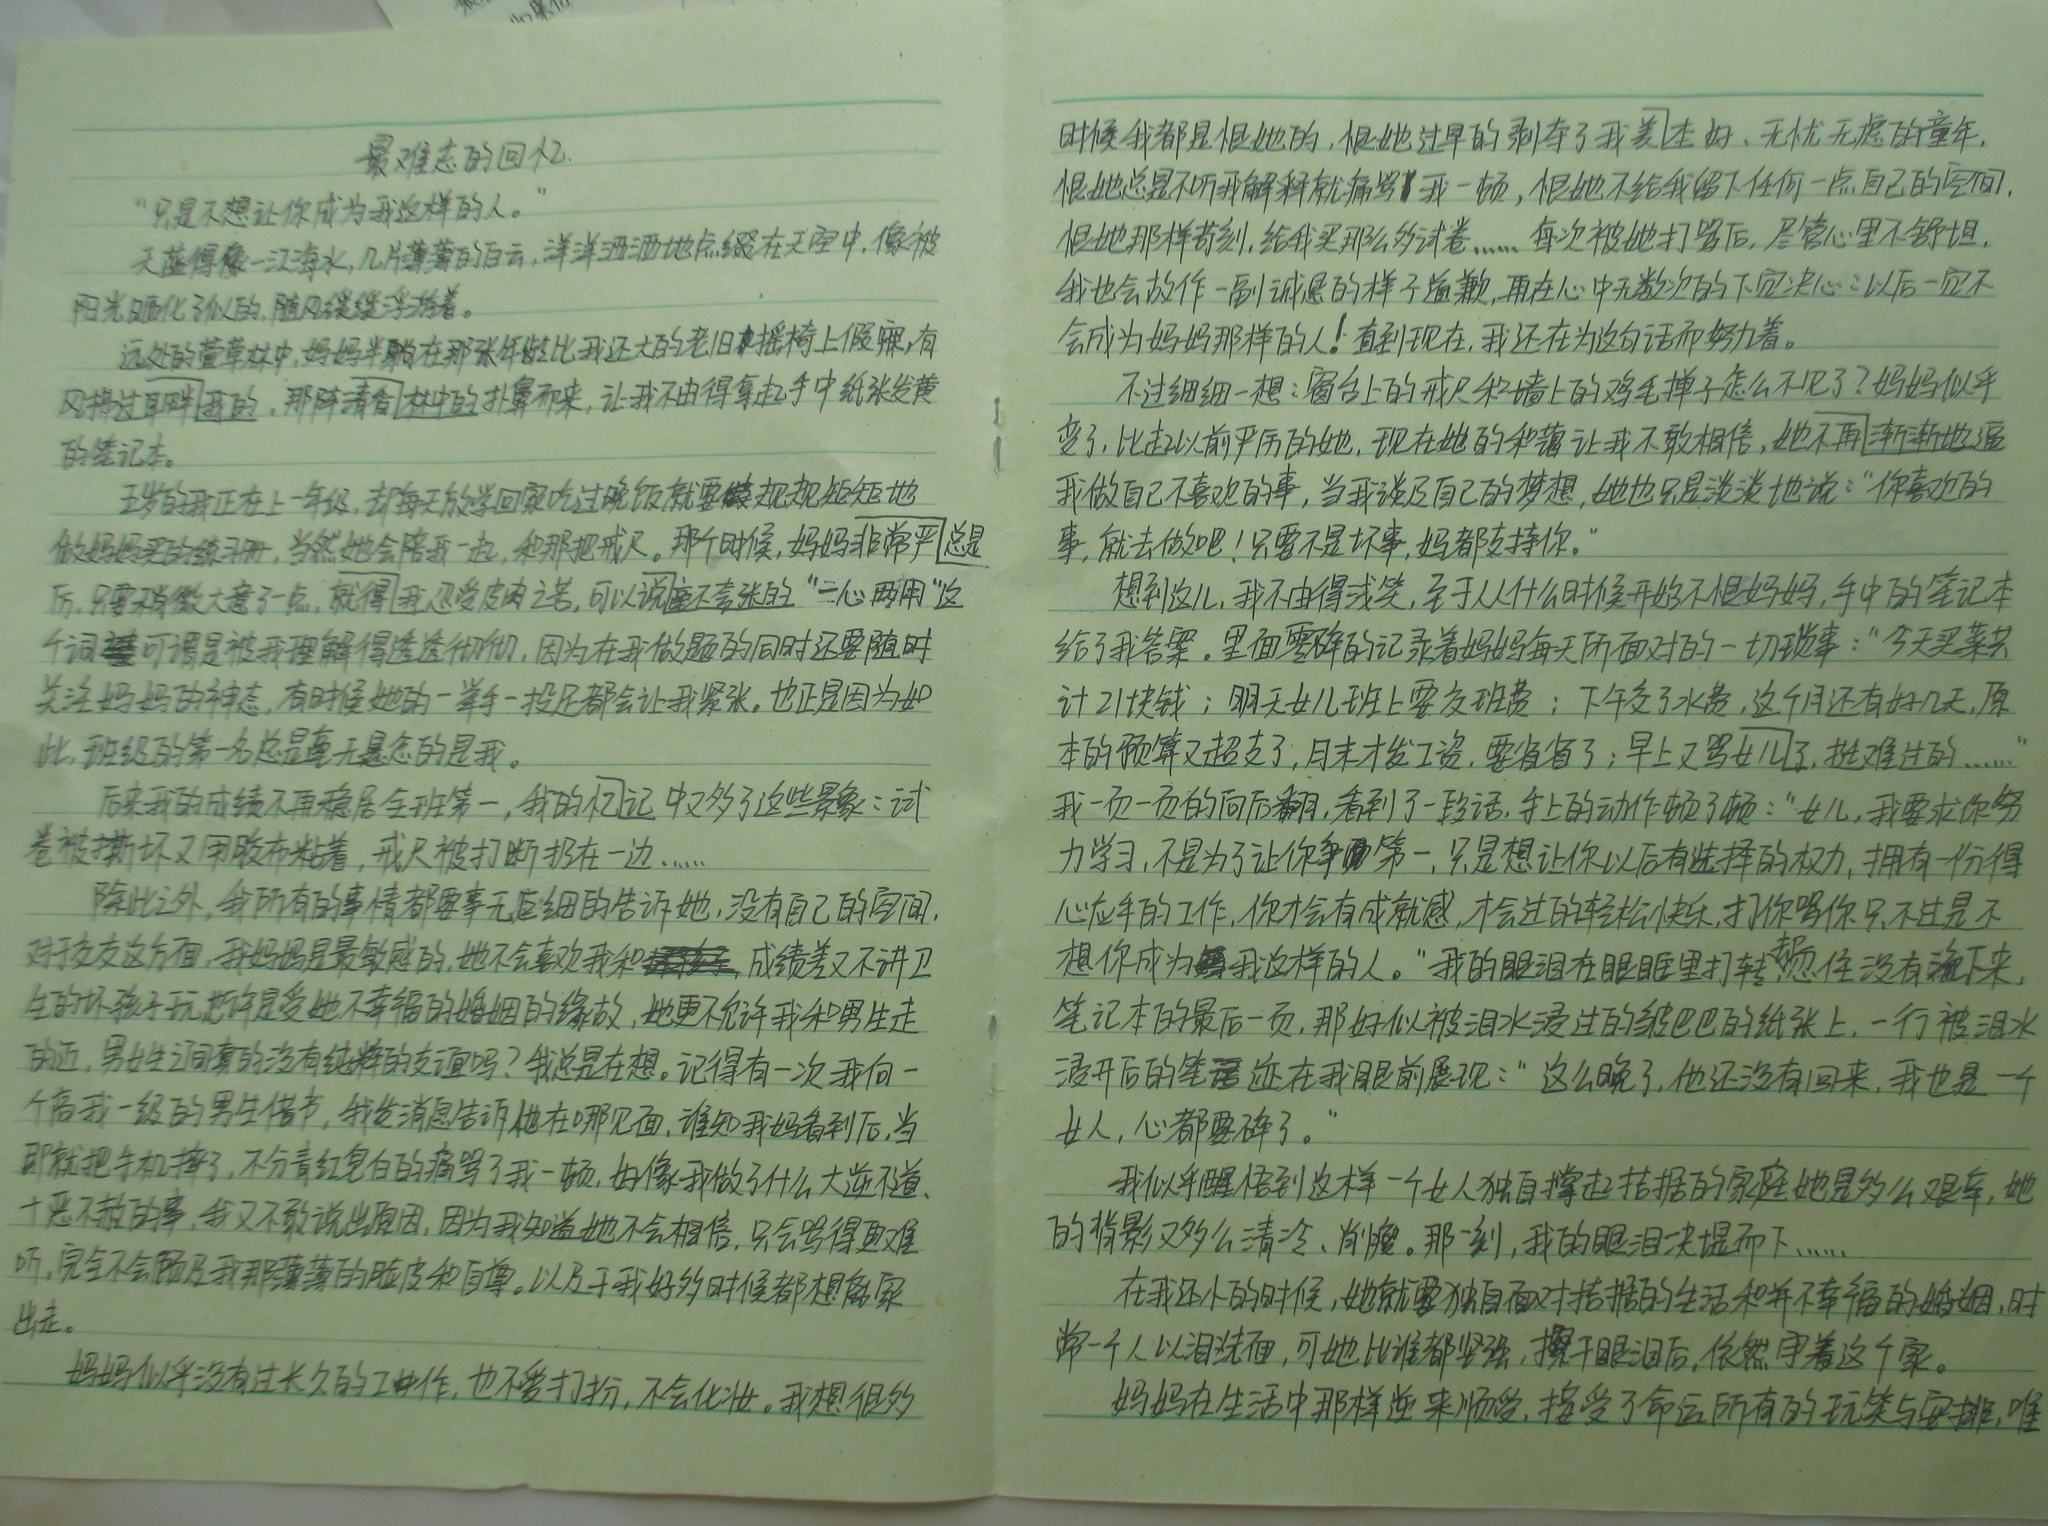 最难忘的回忆.
“只是不想让你成为我这样的人。”
天蓝得像一江海水,几片薄薄的白云,洋洋洒洒地点缀在天空中,像被
阳光晒化了似的,随风缓缓浮游着。
远处的萱草林中,妈妈半躺在那张年龄比我还大的老旧摇椅上假寐,有
风拂过耳畔我的,那阵清香林中的扑鼻而来,让我不由得拿起手中纸张发黄
的笔记本。
五岁的我正在上一年级,却每天放学回家吃过晚饭就要做规规矩矩地
做妈妈买的练习册,当然她会陪我一起,和那把戒尺。那个时候,妈妈非常严总是
厉,只要稍微大意了一点,就得我忍受皮肉之苦,可以说毫不夸张的“一心两用”这
个词可谓是被我理解得透透彻彻,因为在我做题的同时还要随时
关注妈妈的神态,有时候她的一举手一投足都会让我紧张。也正是因为如
此,班级的第一名总是毫无悬念的是我。
后来我的成绩不再稳居全班第一,我的忆记中又多了这些景象:试
卷被撕坏又用胶布粘着,戒尺被打断扔在一边……
除此之外,我所有的事情都要事无巨细的告诉她,没有自己的空间,
对于交友这方面,我妈妈是最敏感的,她不会喜欢我和成绩差又不讲卫
生的坏孩子玩,也许是受她不幸福的婚姻的缘故,她更不允许我和男生走
的近,男女生之间真的没有纯粹的友谊吗?我总是在想。记得有一次我向一
个高我一级的男生借书,我发消息告诉他在哪见面,谁知我妈看到后,当
即就把手机摔了,不分青红皂白的痛骂了我一顿,好像我做了什么大逆不道、
十恶不赦的事,我又不敢说出原因,因为我知道她不会相信,只会骂得更难
听,完全不会顾及我那薄薄的脸皮和自尊。以及于我好多时候都想离家
出走。
妈妈似乎没有过长久的工作,也不爱打扮,不会化妆。我想很多
时候我都是恨她的,恨她过早的剥夺了我美本好、无忧无虑的童年,
恨她总是不听我解释就痛骂我一顿,恨她不给我留下任何一点自己的空间,
恨她那样苛刻,给我买那么多试卷……每次被她打骂后,尽管心里不舒坦,
我也会故作一副诚恳的样子道歉,再在心中无数次的下定决心:以后一定不
会成为妈妈那样的人!直到现在,我还在为这句话而努力着。
不过细细一想:窗台上的戒尺和墙上的鸡毛掸子怎么不见了?妈妈似乎
变了,比起以前严厉的她,现在她的和蔼让我不敢相信,她不再渐渐地逼
我做自己不喜欢的事,当我谈及自己的梦想,她也只是淡淡地说:“你喜欢的
事,就去做吧!只要不是坏事,妈都支持你。”
想到这儿,我不由得浅笑,至于从什么时候开始不恨妈妈,手中的笔记本
给了我答案。里面零碎的记录着妈妈每天所面对的一切琐事:“今天买菜共
计21块钱;明天女儿班上要交班费;下午交了水费,这个月还有好几天,原
本的预算又超支了,月末才发工资,要省省了;早上又骂女儿了,挺难过的……”
我一页一页的向后翻,看到了一段话,手上的动作顿了顿:“女儿,我要求你努
力学习,不是为了让你争第一,只是想让你以后有选择的权力,拥有一份得
心应手的工作,你才会有成就感,才会过的轻松快乐,打你骂你只不过是不
想你成为我这样的人。”我的眼泪在眼眶里打转,却忍住没有淌下来,
笔记本的最后一页,那好似被泪水浸过的皱巴巴的纸张上,一行被泪水
浸开后的笔迹在我眼前展现:“这么晚了,他还没有回来,我也是一个
女人,心都要碎了。”
我似乎醒悟到这样一个女人独自撑起拮据的家庭她是多么艰辛,她
的背影又多么清冷、削瘦。那一刻,我的眼泪决堤而下……
在我还小的时候,她就要独自面对拮据的生活和并不幸福的婚姻,时
常一个人以泪洗面,可她比谁都坚强,擦干眼泪后,依然守着这个家。
妈妈在生活中那样逆来顺受,接受了命运所有的玩笑与安排,唯